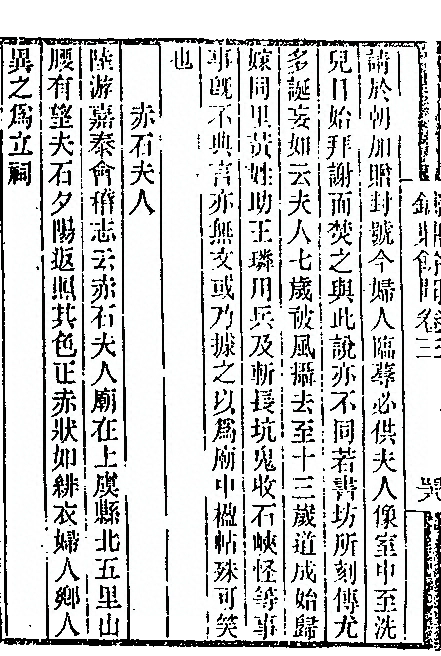 請於朝加贈封號今婦人臨蓐必供夫人像室中至洗
兒日始拜謝而焚之與此說亦不同若書坊所刻傳尤
多誕妄如云夫人七歲被風攝去至十三歲道成始歸
嫁同里黃姓助王璘用兵及斬長坑鬼收石峽怪等事
事既不典言亦無文或乃據之以爲廟中楹帖殊可笑
也
赤石夫人
陸游嘉泰會稽志云赤石夫人廟在上虞縣北五里山
腰有望夫石夕陽返照其色正赤狀如緋衣婦人鄉人
異之爲立祠